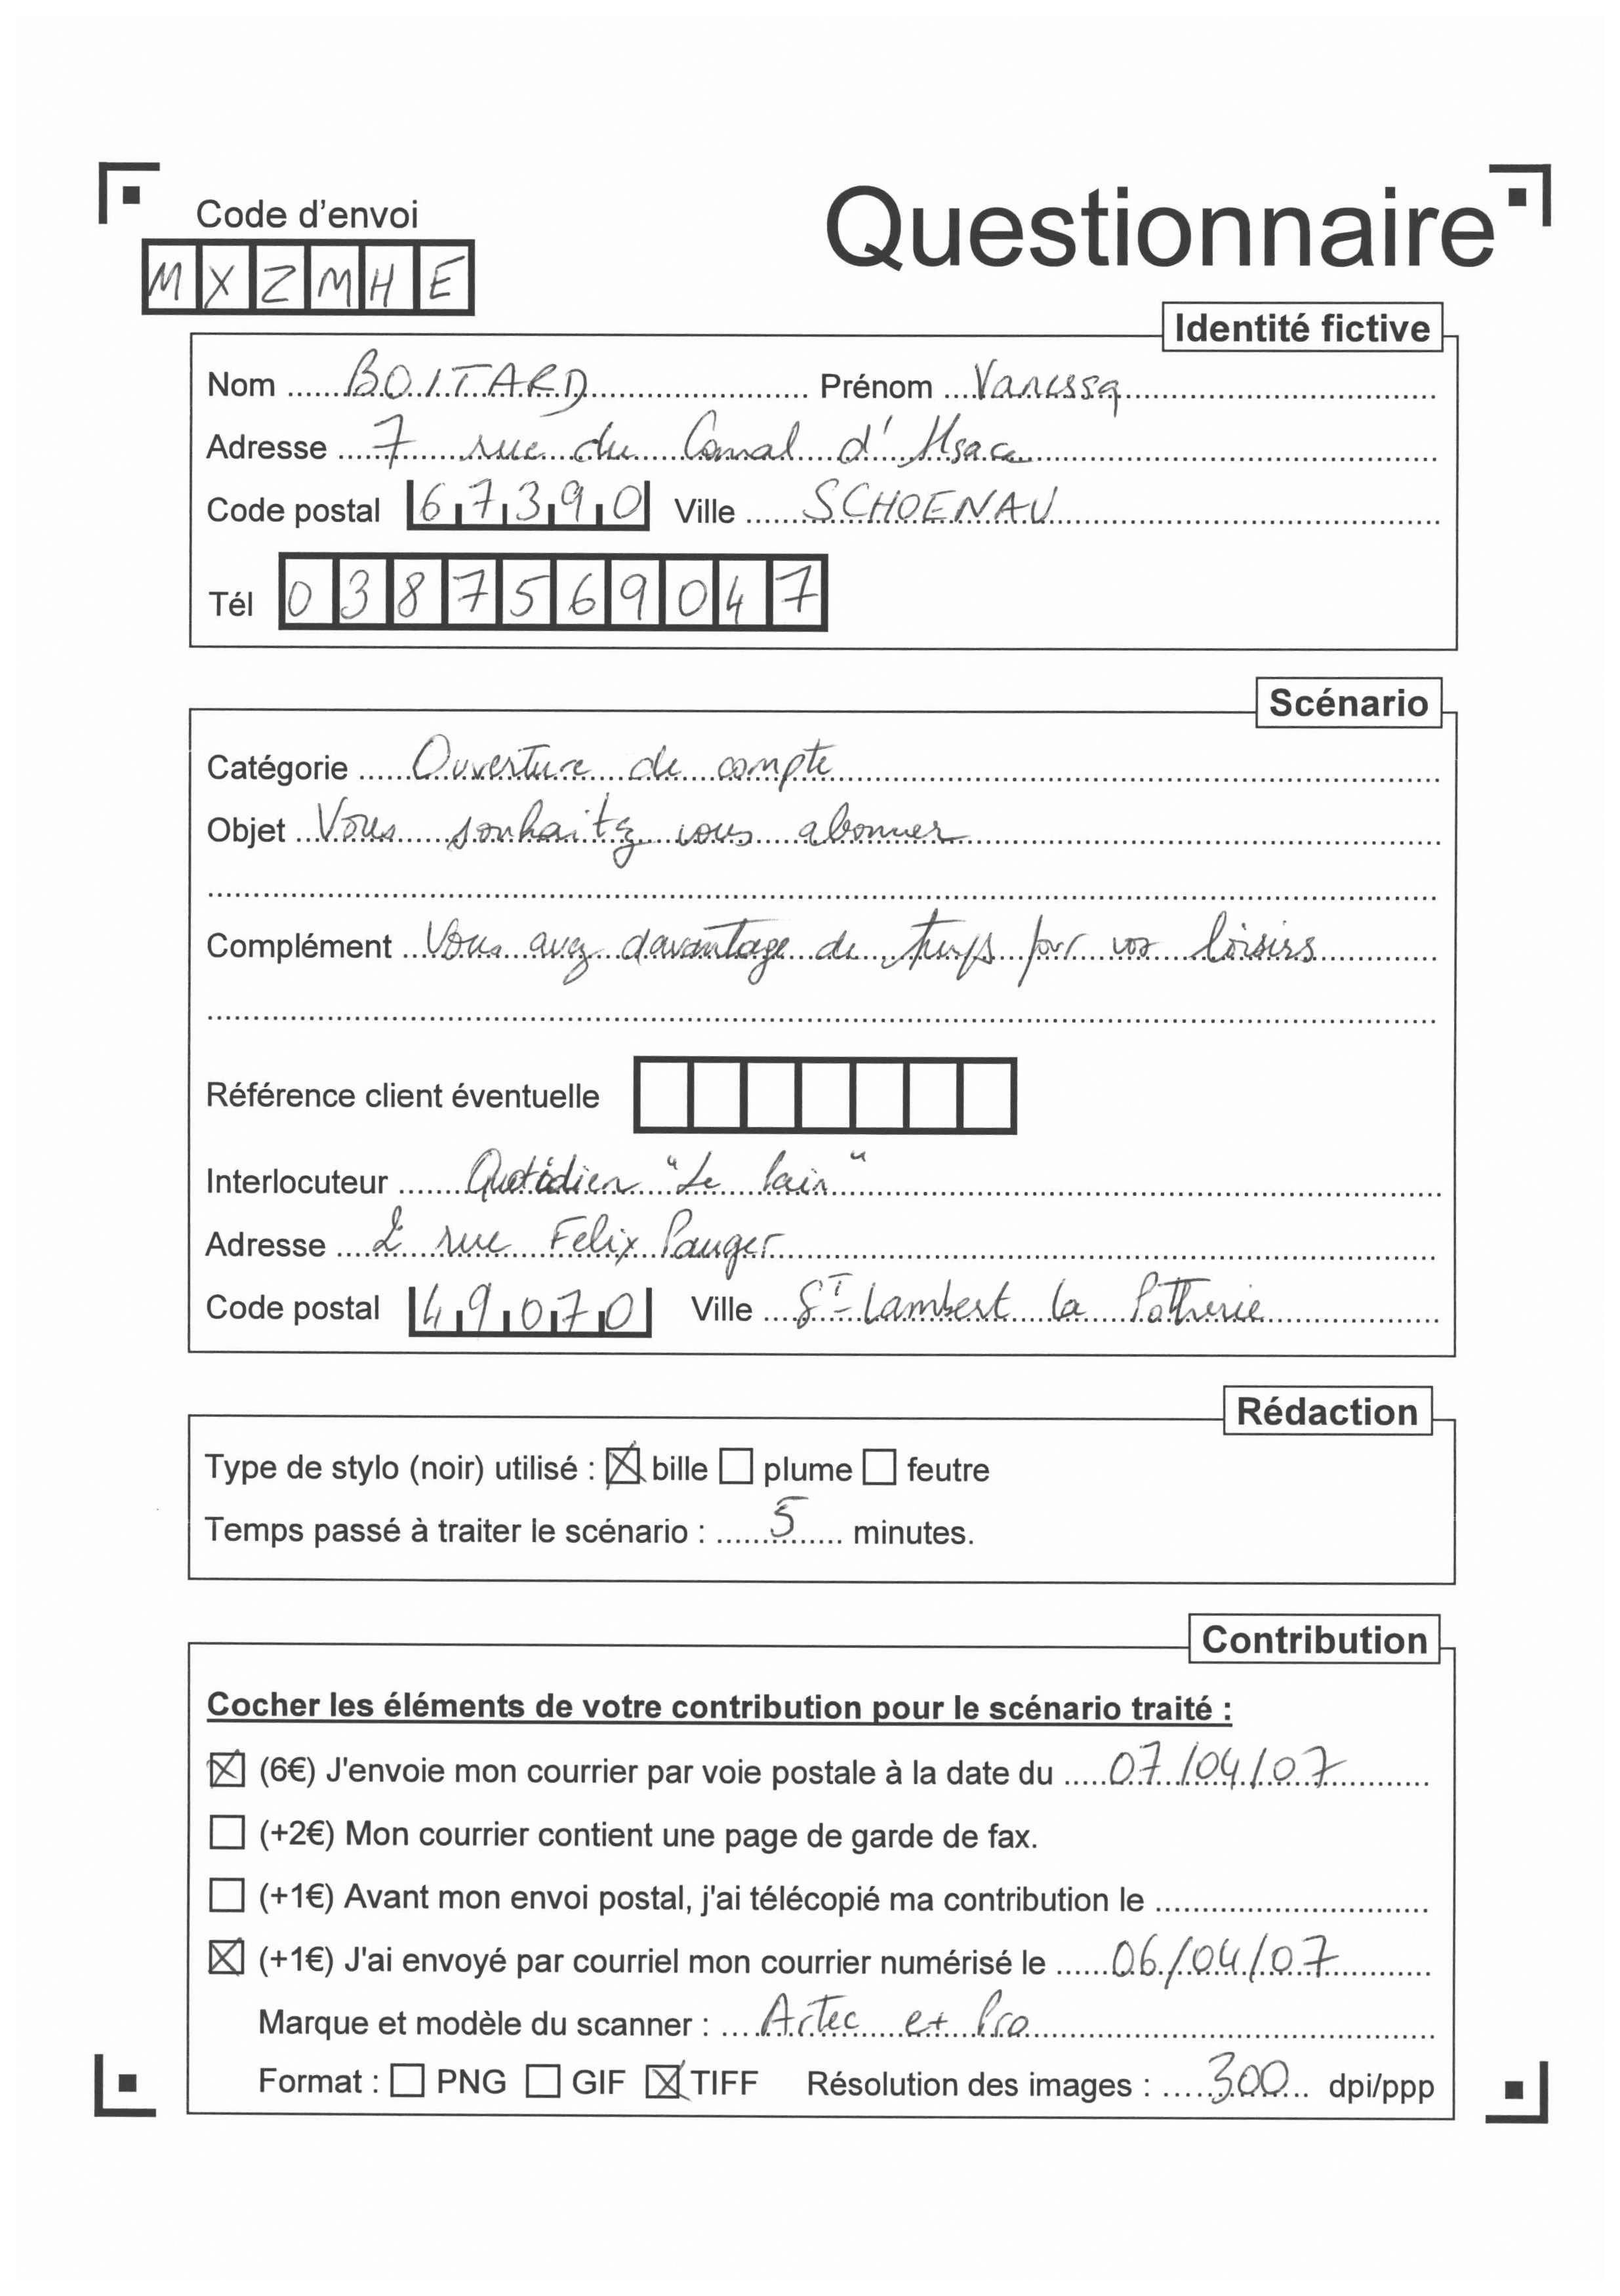 Code d'envoi
Questionnaire
MXZMHE
Identité fictive
Nom BOITARD Prénom Vanessa
Adresse 7 rue du Canal d'Alsace
Code postal 67390 Ville SCHOENAU
Tél 0387569047
Scénario
Catégorie Ouverture de compte
Objet Vous souhaitez vous abonner
Complément Vous avez davantage de temps pour vos loisirs
Référence client éventuelle
Interlocuteur Quotidien "Le lain"
Adresse 2 rue Felix Pauger
Code postal 49070 Ville ST-Lambert la Potherie
Rédaction
Type de stylo (noir) utilisé : ☒ bille ☐ plume ☐ feutre
Temps passé à traiter le scénario : 5 minutes.
Contribution
Cocher les éléments de votre contribution pour le scénario traité :
☒ (6€) J'envoie mon courrier par voie postale à la date du 07/04/07
☐ (+2€) Mon courrier contient une page de garde de fax.
☐ (+1€) Avant mon envoi postal, j'ai télécopié ma contribution le
☒ (+1€) J'ai envoyé par courriel mon courrier numérisé le 06/04/07
Marque et modèle du scanner : Artec e+ Pro
Format : ☐ PNG ☐ GIF ☒ TIFF Résolution des images : 300 dpi/ppp